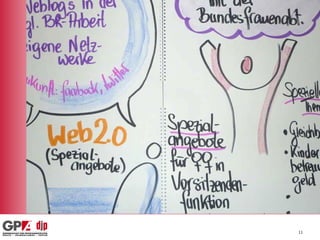 Weblogs in der
gl. BR-Arbeit
eigene Netz-
werke
Zukunft: facebook, twitter
Web 2.0
(Spezial-
angebote)
mit der
Bundesfrauenabt.
Spezial-
angebote
für ♀♀ in
Vorsitzenden-
funktion
Spezielle
Them
• Gleichb
• Kinder
betreu
geld
•
GPA djp
11